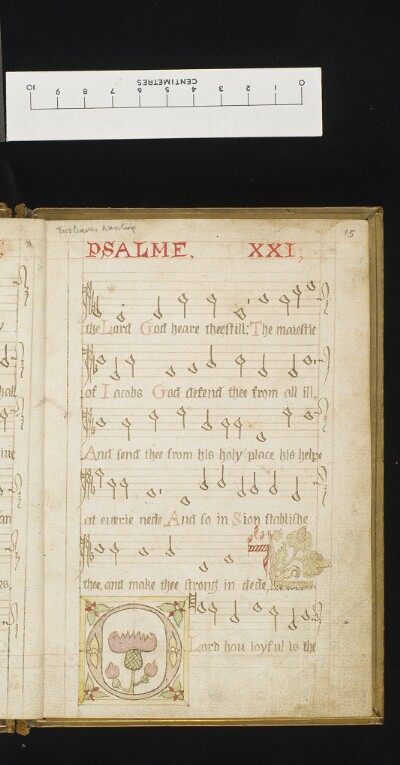 10 9 8 7 6 5 4 3 2 1 0
CENTIMETRES
two leaves wanting
15
PSALME. XXI.
the Lord God heare thee still: The maiestie
of Iacobs God defend thee from all ill,
And send thee from his holy place his helpe
at euerie nede, And so in Sion stablishe
thee, and make thee strong in dede,
Lord hou ioyful is the